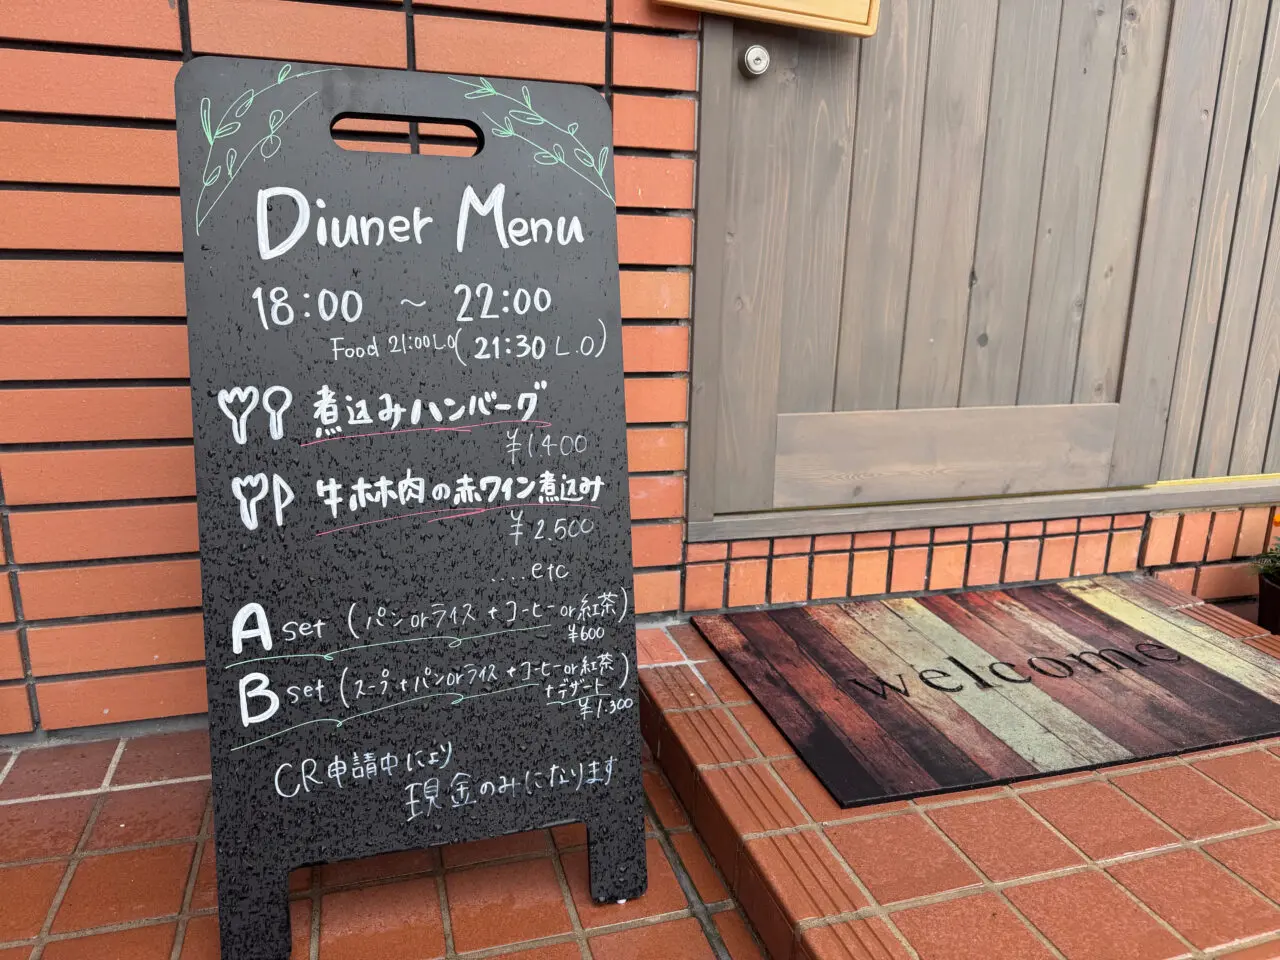 Diuner Menu
18:00 ~ 22:00
Food 21:00 L.O (21:30 L.O)
煮込みハンバーグ
¥1.400
牛ホホ肉の赤ワイン煮込み
¥2.500
....etc
A set (パンorライス+コーヒーor紅茶)
¥600
B set (スープ+パンorライス+コーヒーor紅茶)
+デザート
¥1.300
CR申請中により
現金のみになります
welcome